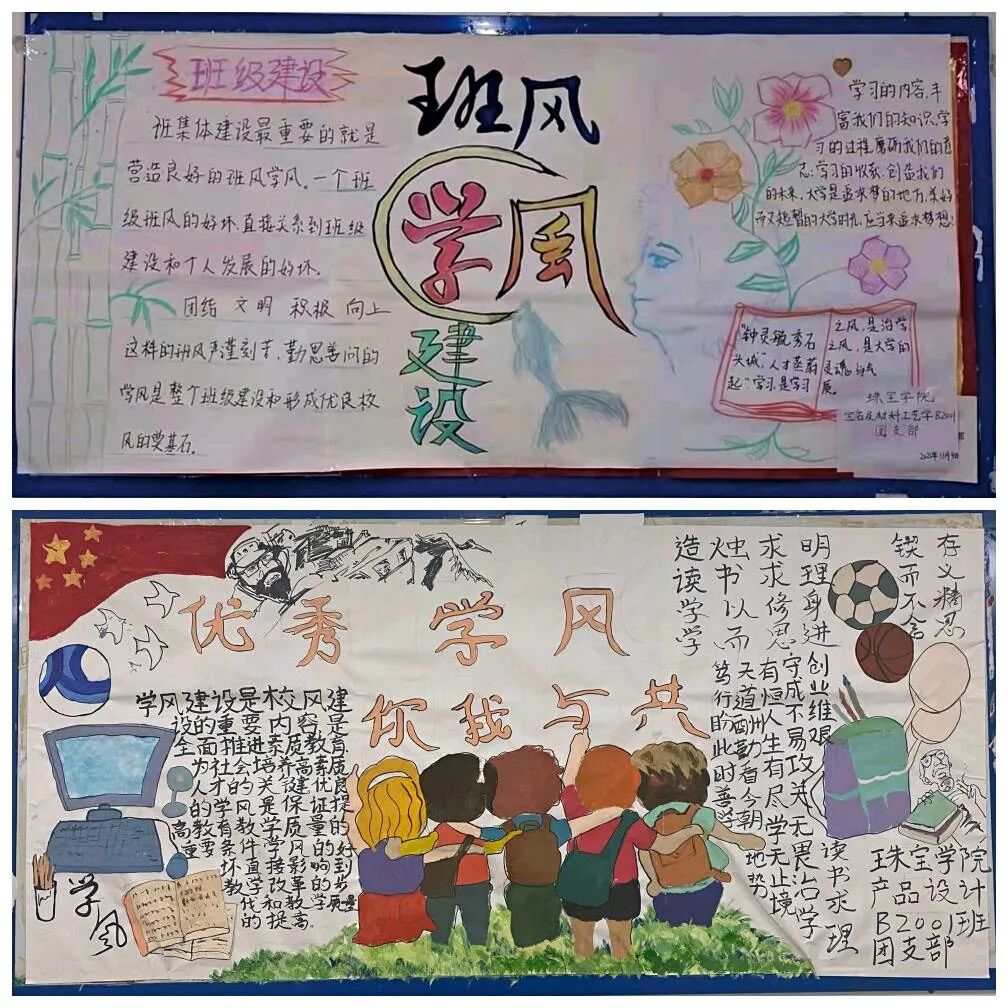 班级建设
班集体建设最重要的就是
营造良好的班风学风。一个班
级班风的好坏直接关系到班级
建设和个人发展的好坏。
团结 文明 积极 向上
这样的班风严谨刻苦,勤思善问的
学风是整个班级建设和形成优良校
风的奠基石。
班风
学风
建设
学习的内容,丰
富我们的知识,学
习的过程,磨砺我们的意
志;学习的收获,创造我们
的未来。大学是追求梦的地方,美好
的大学时光,应当来追求梦想!
"钟灵毓秀石
头城",人才蒸蔚
起"学习,是学习
之风,是治学
之风,是大学的
灵魂与气
质
珠宝学院
宝石及材料工艺学B2001
团支部
2021年11月9日
优秀学风
你我与共
学风建设是校风建
设的重要内容是
全面推进素质教育
为社会培养高素质
人才的关键
学风
存义精思
锲而不舍
明理身进
求求修思
烛书以而
造读学学
创业维艰
守成不易攻关无畏治学
有恒人生有尽学无止境
天道酬勤看今朝
笃行盼此时善学
读书求理
珠宝学院
产品设计
B2001班
团支部